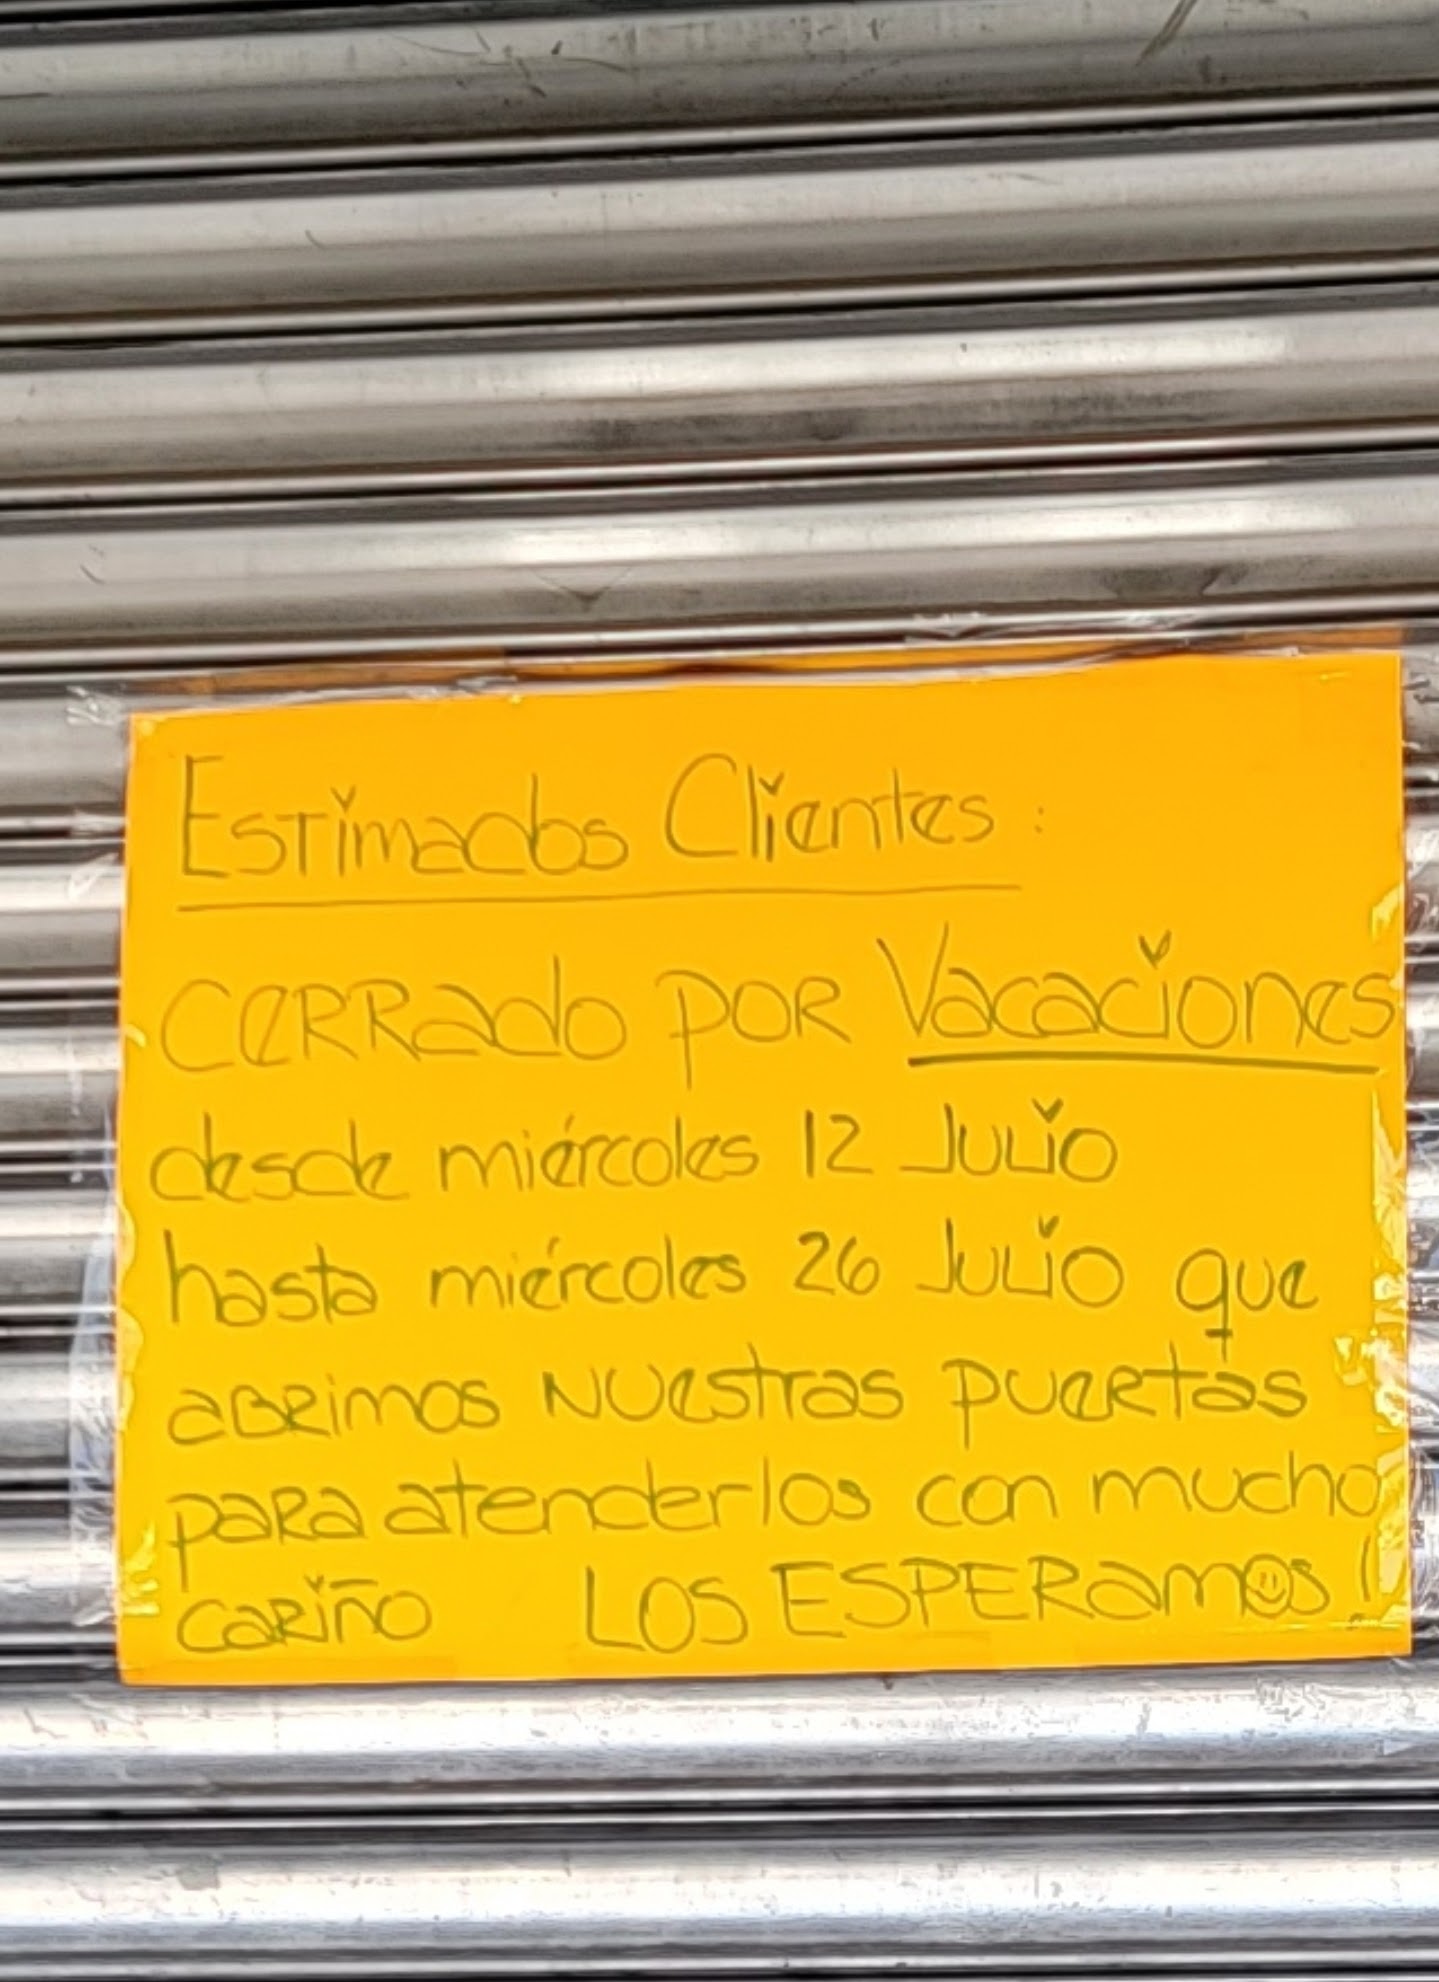 Estimados Clientes:
Cerrado por Vacaciones
desde miércoles 12 Julio
hasta miércoles 26 Julio que
abrimos nuestras puertas
para atenderlos con mucho
cariño LOS ESPERamos!